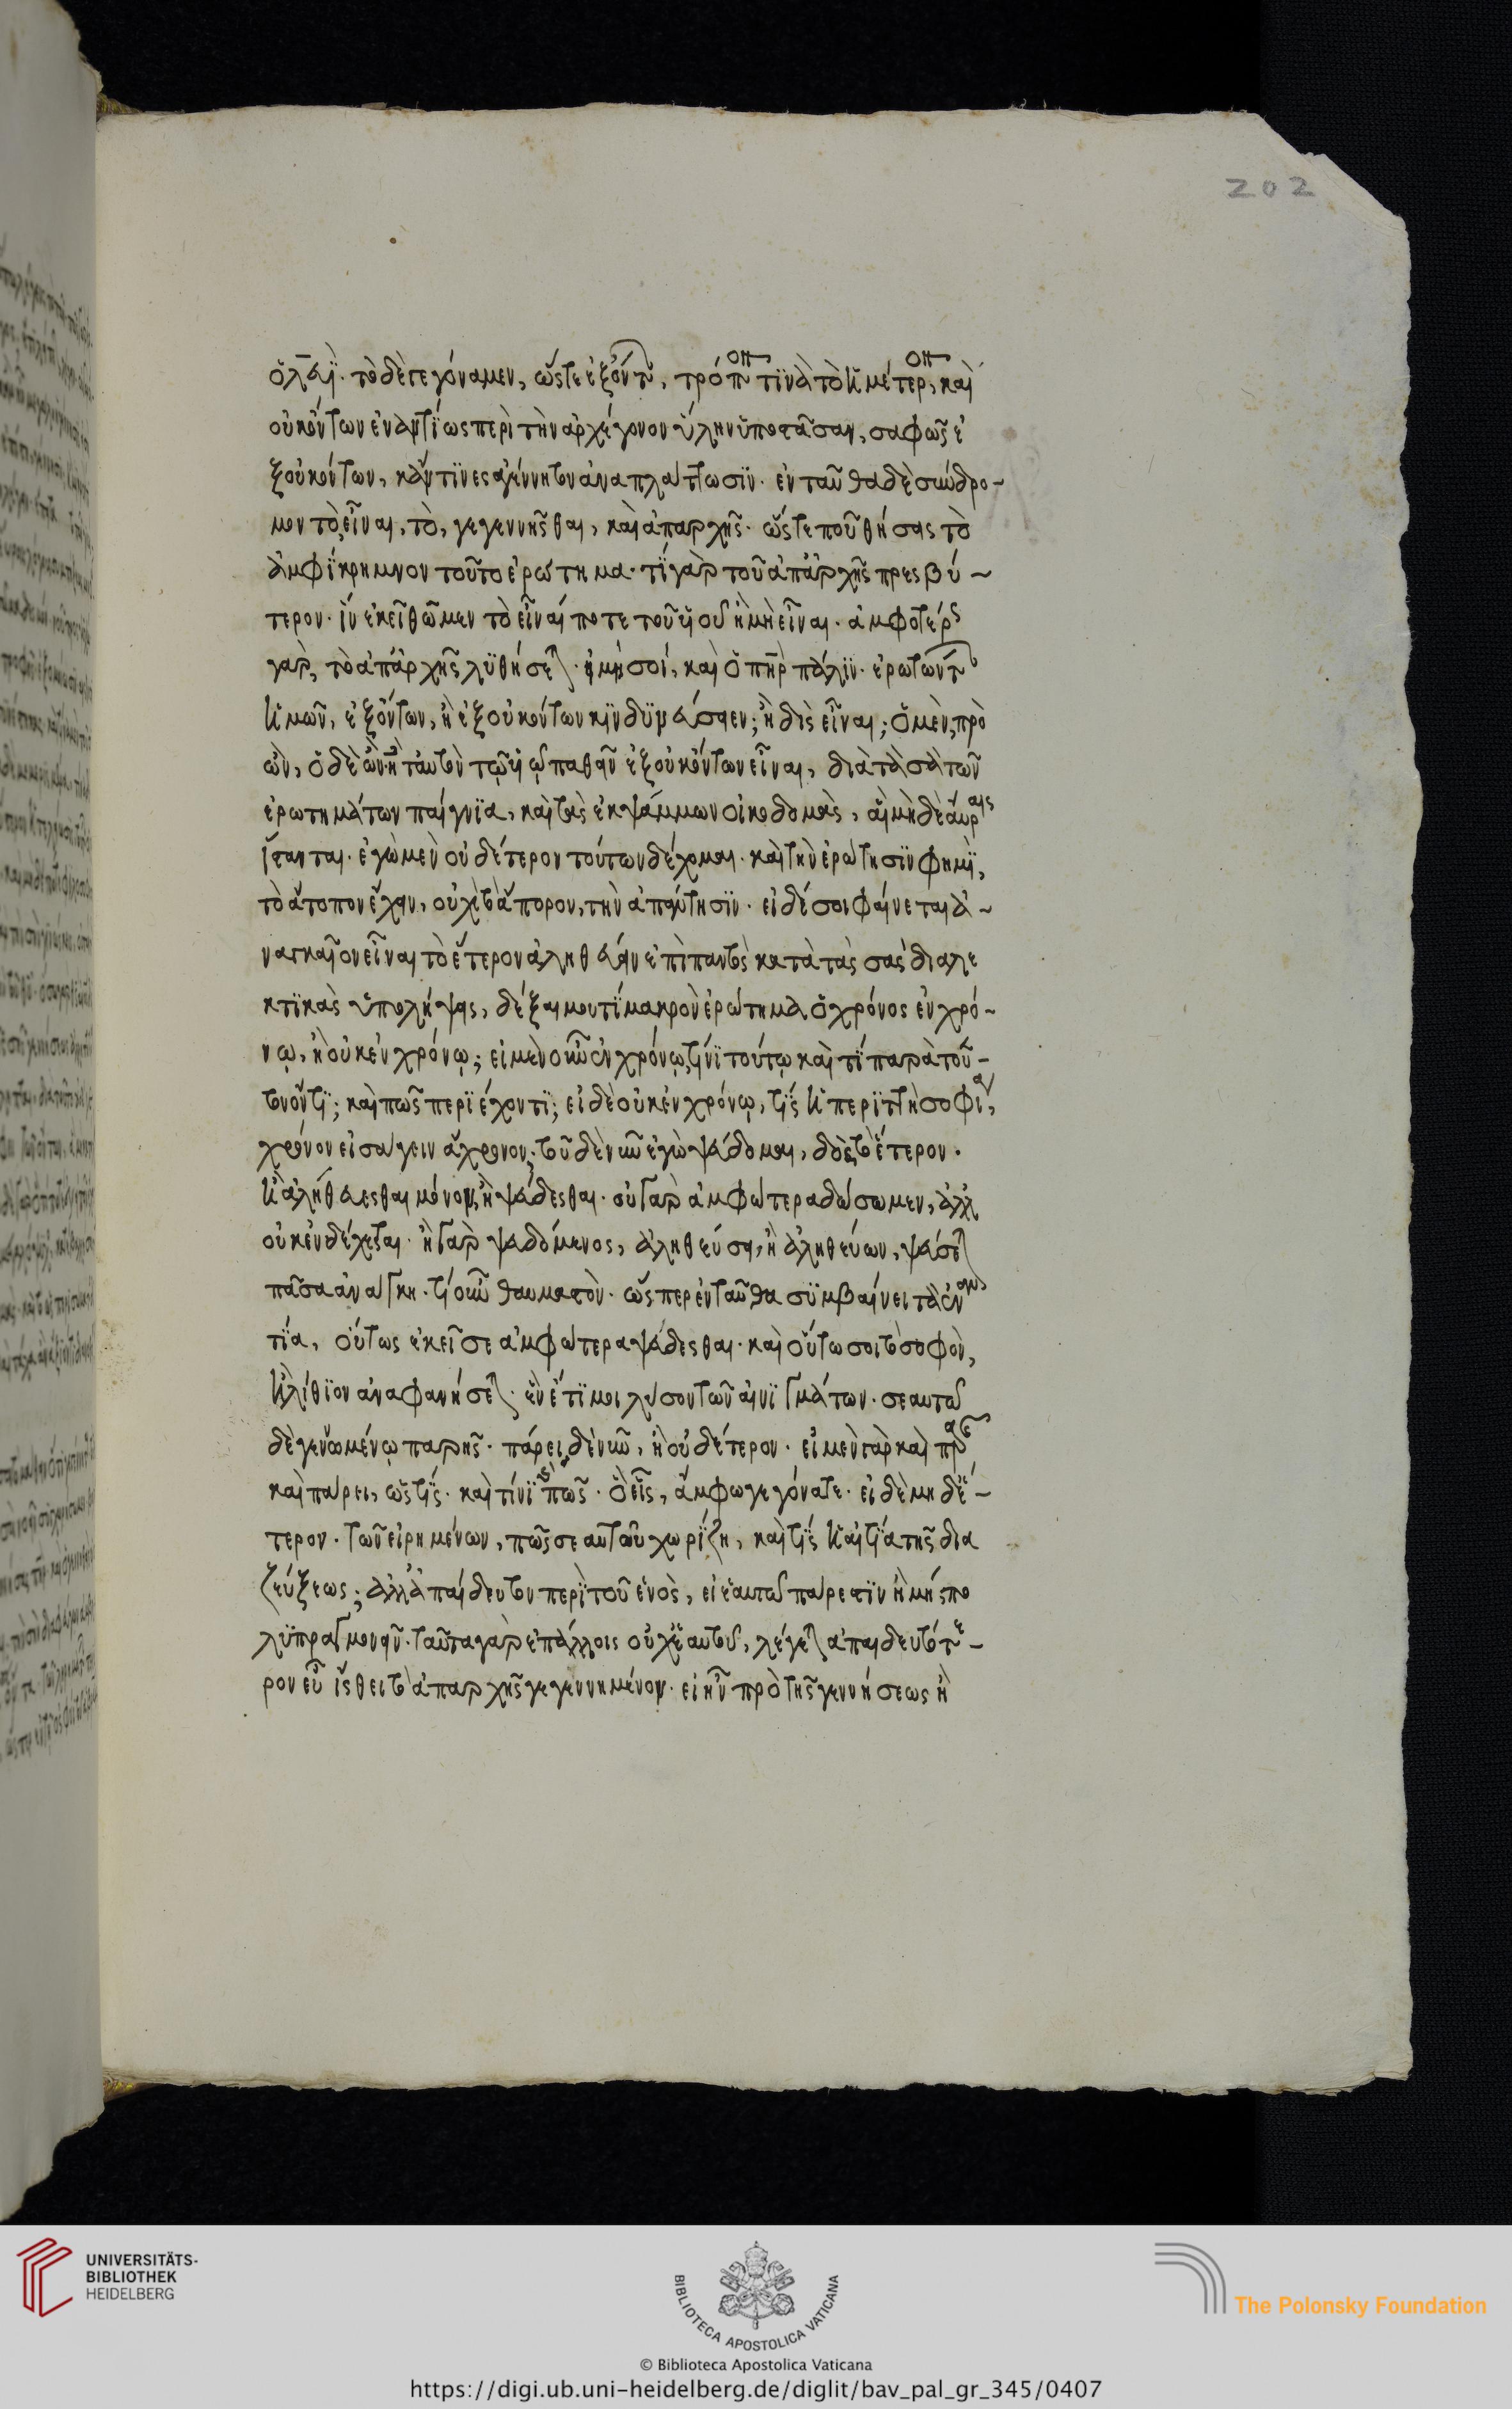 ὅλως ἦν· τὸ δὲ γεγόναμεν, ὥστε ἐξ ὄντων, τρόπον τινὰ τὸ ἡμέτερον, καὶ
οὐκ ὄντων ἐναντίως περὶ τὴν ἀρχέγονον ὕλην ὑποστᾶσαν, σαφῶς ἐ
ξ οὐκ όντων, κἄν τινες ἀγέννητον ἀναπλάττωσιν· ἐνταῦθα δὲ σύνδρο-
μον τὸ εἶναι, τὸ, γεγεννῆσθαι, καὶ ἀπαρχῆς· ὥστε ποῦ θήσεις τὸ
ἀμφίκρημνον τοῦτο ἐρώτημα· τί γὰρ τοῦ ἀπἀρχῆς πρεσβύ-
τερον· ἵν ἐκεῖ θῶμεν τὸ εἶναί ποτε τοῦ υἱοῦ ἢ μὴ εἶναι· ἀμφοτέρως
γαρ, τὸ ἀπἀρχῆς λυθήσεται· εἰ μή σοι, καὶ ὁ πηρ πάλιν· ἐρωτώντων
ἡμῶν, ἐξ ὄντων, ἢ ἐξ οὐκ όντων κινδυνεύσειεν; ἢ δὶς εἶναι; ὁ μὲν, πρὸ
ὢν, ὁ δὲ ὢν· ἢ ταυτὸν τῷ υἱῷ παθεῖν ἐξ οὐκ ὄντων εἶναι, διὰ τὰ σὰ τῶν
ἐρωτημάτων παίγνια, καὶ τὰς ἐκ ψάμμων οἰκοδομὰς, αἳ μηδὲ αὔραις
ἵστανται· ἐγὼ μὲν οὐδέτερον τούτων δέχομαι· καὶ τὴν ἐρώτησιν φημὶ,
τὸ ἄτοπον ἔχειν, οὐχὶ τὸ ἄπορον, τὴν ἀπάντησιν· εἰ δέ σοι φαίνεται ἀ-
ναγκαῖον εἶναι τὸ ἕτερον ἀληθεύειν ἐπὶ παντὸς κατὰ τὰς σας διαλε
κτικὰς ὑπολήψεις, δέξαι μου τί μακρον ἐρώτημα ὁ χρόνος ἐν χρό-
νῳ, ἢ οὐκ ἐν χρόνῳ; εἰ μὲν οὖν ἐν χρόνῳ, τίνι τούτῳ καὶ τί παρὰ τοῦ-
τον ὄντι; καὶ πῶς περιέχοντι; εἰ δὲ οὐκ ἐν χρόνῳ, τίς ἡ περιττὴ σοφία,
χρόνον εἰσάγειν ἄχρονον; τοῦ δὲ νῦν ἐγὼ ψεύδομαι, δὸς τὸ ἕτερον·
ἢ ἀληθεύεσθαι μόνον, ἢ ψεύδεσθαι· οὐ γαρ ἀμφότερα δώσωμεν, ἀλλ
οὐκ ἐνδέχεται· ἢ γαρ ψευδόμενος, ἀληθεύσει, ἢ ἀληθεύων, ψεύσεται
πᾶσα ἀνάγκη· τί οὖν θαυμαστὸν· ὥσπερ ἐνταῦθα συμβαίνει τὰ ἐναν
τία, οὕτως ἐκεῖσε ἀμφότερα ψεύδεσθαι· καὶ οὕτω σοι τὸ σοφὸν,
ἠλίθιον ἀναφανήσεται· ἓν ἔτι μοι λῦσον τῶν αἰνιγμάτων· σεαυτῷ
δὲ γεννωμένῳ παρῆς· πάρει δὲ νῦν, ἢ οὐδέτερον· εἰ μεν γὰρ καὶ παρῆς
καὶ πάρει, ὡς τίς· καὶ τίνι· πῶς· ὁ εἷς, ἄμφω γεγόνατε· εἰ δὲ μηδέ-
τερον· τῶν εἰρημένων, πῶς σεαυτοῦ χωρίζη, καὶ τίς ἡ αἰτία τῆς δια
ζεύξεως; ἀλλ ἀπαίδευτον περὶ τοῦ ἑνὸς, εἰ ἑαυτῷ πάρεστιν ἢ μής πο
λυπραγμονεῖν· ταῦτα γαρ ἐπ ἄλλοις οὐχ ἑαυτοῦ, λέγεται ἀπαιδευτότε-
ρον εὖ ἴσθει τὸ ἀπαρχῆς γεγεννημένον· εἰ ἦν πρὸ τῆς γεννήσεως ἢ
202
UNIVERSITÄTS-
BIBLIOTHEK
HEIDELBERG
BIBLIOTECA APOSTOLICA VATICANA
The Polonsky Foundation
© Biblioteca Apostolica Vaticana
https://digi.ub.uni-heidelberg.de/diglit/bav_pal_gr_345/0407